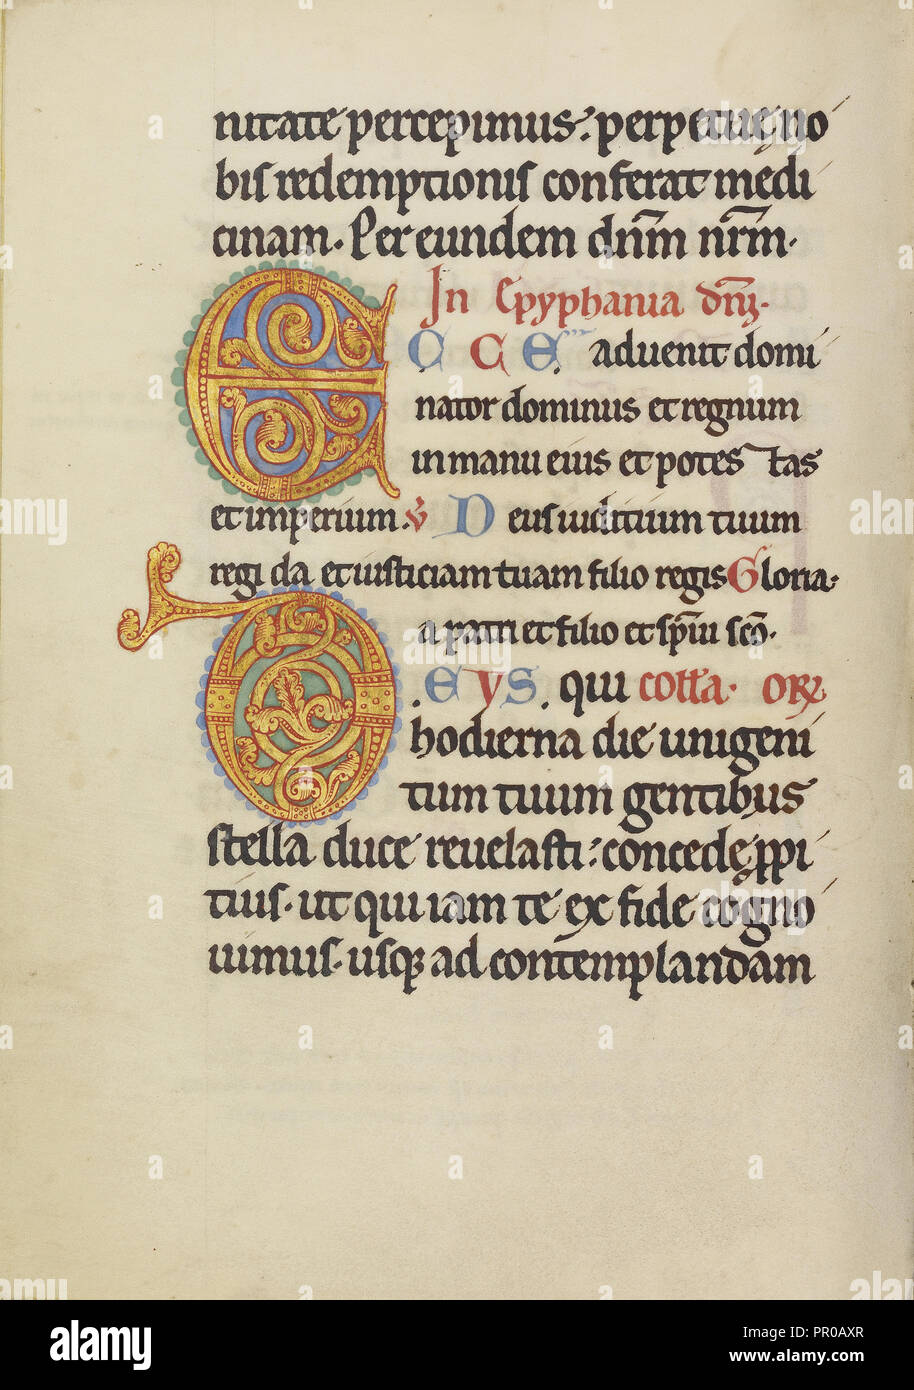 nitate percepimus: perpetuę no
bis redemptionis conferat medi
cinam. Per eundem dnm nrm.
In Epyphania dni.
E C C E advenit domi
nator dominus et regnum
in manu eius et potestas
et imperium. v Deus iuditium tuum
regi da et iusticiam tuam filio regis Gloria
a patri et filio et spiui sco.
D EYS. qui colta. or
hodierna die unigeni
tum tuum gentibus
stella duce revelasti: concede ppi
tius. ut qui iam te ex fide cogno
vimus. usq; ad contemplandam
alamy
Image ID: PR0AXR
www.alamy.com